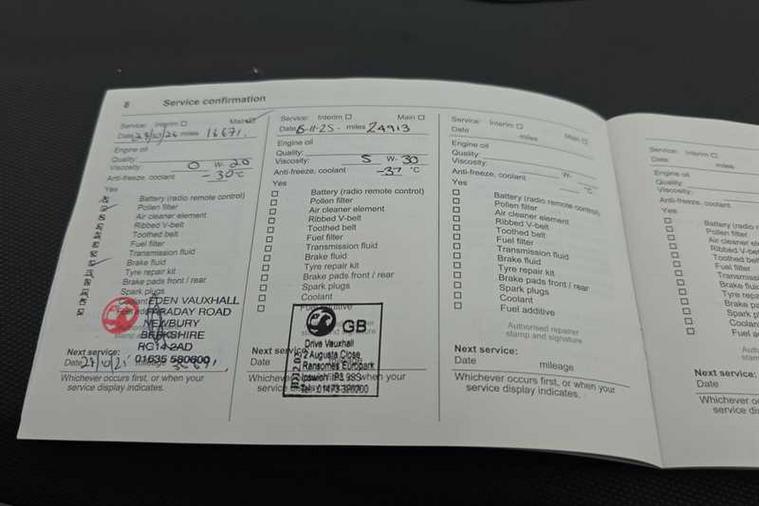 8 Service confirmation
Service: Interim Main
Date 16671
Engine oil
Quality:
Viscosity: 0 W- 20
Anti-freeze, coolant -30°C
Yes
Battery (radio remote control)
Pollen filter
Air cleaner element
Ribbed V-belt
Toothed belt
Fuel filter
Transmission fluid
Brake fluid
Tyre repair kit
Brake pads front / rear
Spark plugs
EDEN VAUXHALL
FARADAY ROAD
NEWBURY
BERKSHIRE
RG14 2AD
01635 580600
Next service:
Date mileage
Whichever occurs first, or when your
service display indicates.
Service: Interim Main
Date 6-11-25- miles 24913
Engine oil
Quality:
Viscosity: 5 W- 30
Anti-freeze, coolant -37 °C
Yes
Battery (radio remote control)
Pollen filter
Air cleaner element
Ribbed V-belt
Toothed belt
Fuel filter
Transmission fluid
Brake fluid
Tyre repair kit
Brake pads front / rear
Spark plugs
Coolant
GB
Drive Vauxhall
2 Augusta Close
Ransomes Europark
Ipswich IP3 9SS
Next service
Date
when your
Service: Interim Main
Date miles
Engine oil
Quality:
Viscosity: W-
Anti-freeze, coolant °C
Yes
Battery (radio remote control)
Pollen filter
Air cleaner element
Ribbed V-belt
Toothed belt
Fuel filter
Transmission fluid
Brake fluid
Tyre repair kit
Brake pads front / rear
Spark plugs
Coolant
Fuel additive
Authorised repairer
stamp and signature
Next service:
Date mileage
Whichever occurs first, or when your
service display indicates.
Service: Interim
Date miles
Engine oil
Quality:
Viscosity:
Anti-freeze, coolant
Yes
Battery (radio r
Pollen filter
Air cleaner el
Ribbed V-be
Toothed be
Fuel filter
Transmiss
Brake flu
Tyre repa
Brake pa
Spark p
Coolan
Fuel a
Next service:
Date
Whichever o
service di